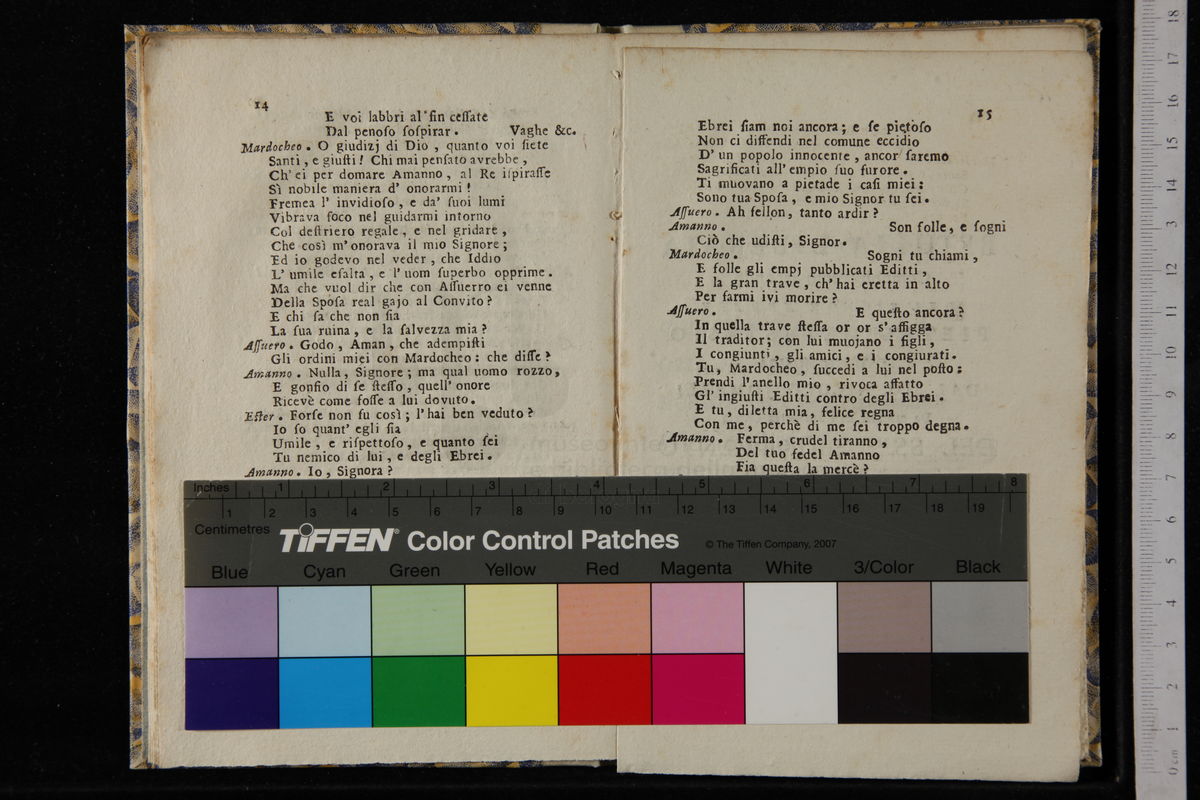 14
E voi labbri al fin ceſſate
Dal penoſo ſoſpirar. Vaghe &c.
Mardocheo. O giudizj di Dio, quanto voi ſiete
Santi, e giuſti! Chi mai penſato avrebbe,
Ch' ei per domare Amanno, al Re iſpiraſſe
Sì nobile maniera d' onorarmi!
Fremea l' invidioſo, e da' ſuoi lumi
Vibrava foco nel guidarmi intorno
Col deſtriero regale, e nel gridare,
Che così m' onorava il mio Signore;
Ed io godevo nel veder, che Iddio
L' umile eſalta, e l' uom ſuperbo opprime.
Ma che vuol dir che con Aſſuerro ei venne
Della Spoſa real gajo al Convito?
E chi ſa che non ſia
La ſua ruina, e la ſalvezza mia?
Aſſuero. Godo, Aman, che adempiſti
Gli ordini miei con Mardocheo: che diſſe?
Amanno. Nulla, Signore; ma qual uomo rozzo,
E gonfio di ſe ſteſſo, quell' onore
Ricevè come foſſe a lui dovuto.
Eſter. Forſe non fu così; l' hai ben veduto?
Io ſo quant' egli ſia
Umile, e riſpettoſo, e quanto ſei
Tu nemico di lui, e degli Ebrei.
Amanno. Io, Signora?
15
Ebrei ſiam noi ancora; e ſe pietoſo
Non ci diffendi nel comune eccidio
D' un popolo innocente, ancor ſaremo
Sagrificati all' empio ſuo furore.
Ti muovano a pietade i caſi miei:
Sono tua Spoſa, e mio Signor tu ſei.
Aſſuero. Ah fellon, tanto ardir?
Amanno. Son folle, e ſogni
Ciò che udiſti, Signor.
Mardocheo. Sogni tu chiami,
E folle gli empj pubblicati Editti,
E la gran trave, ch' hai eretta in alto
Per farmi ivi morire?
Aſſuero. E queſto ancora?
In quella trave ſteſſa or or s' affigga
Il traditor; con lui muojano i figli,
I congiunti, gli amici, e i congiurati.
Tu, Mardocheo, ſuccedi a lui nel poſto:
Prendi l' anello mio, rivoca affatto
Gl' ingiuſti Editti contro degli Ebrei.
E tu, diletta mia, felice regna
Con me, perchè di me ſei troppo degna.
Amanno. Ferma, crudel tiranno,
Del tuo fedel Amanno
Fia queſta la mercè?
Inches 1 2 3 4 5 6 7 8
Centimetres 1 2 3 4 5 6 7 8 9 10 11 12 13 14 15 16 17 18 19
TIFFEN® Color Control Patches © The Tiffen Company, 2007
Blue Cyan Green Yellow Red Magenta White 3/Color Black
18
17
16
15
14
13
12
11
10
9
8
7
6
5
4
3
2
1
0 cm